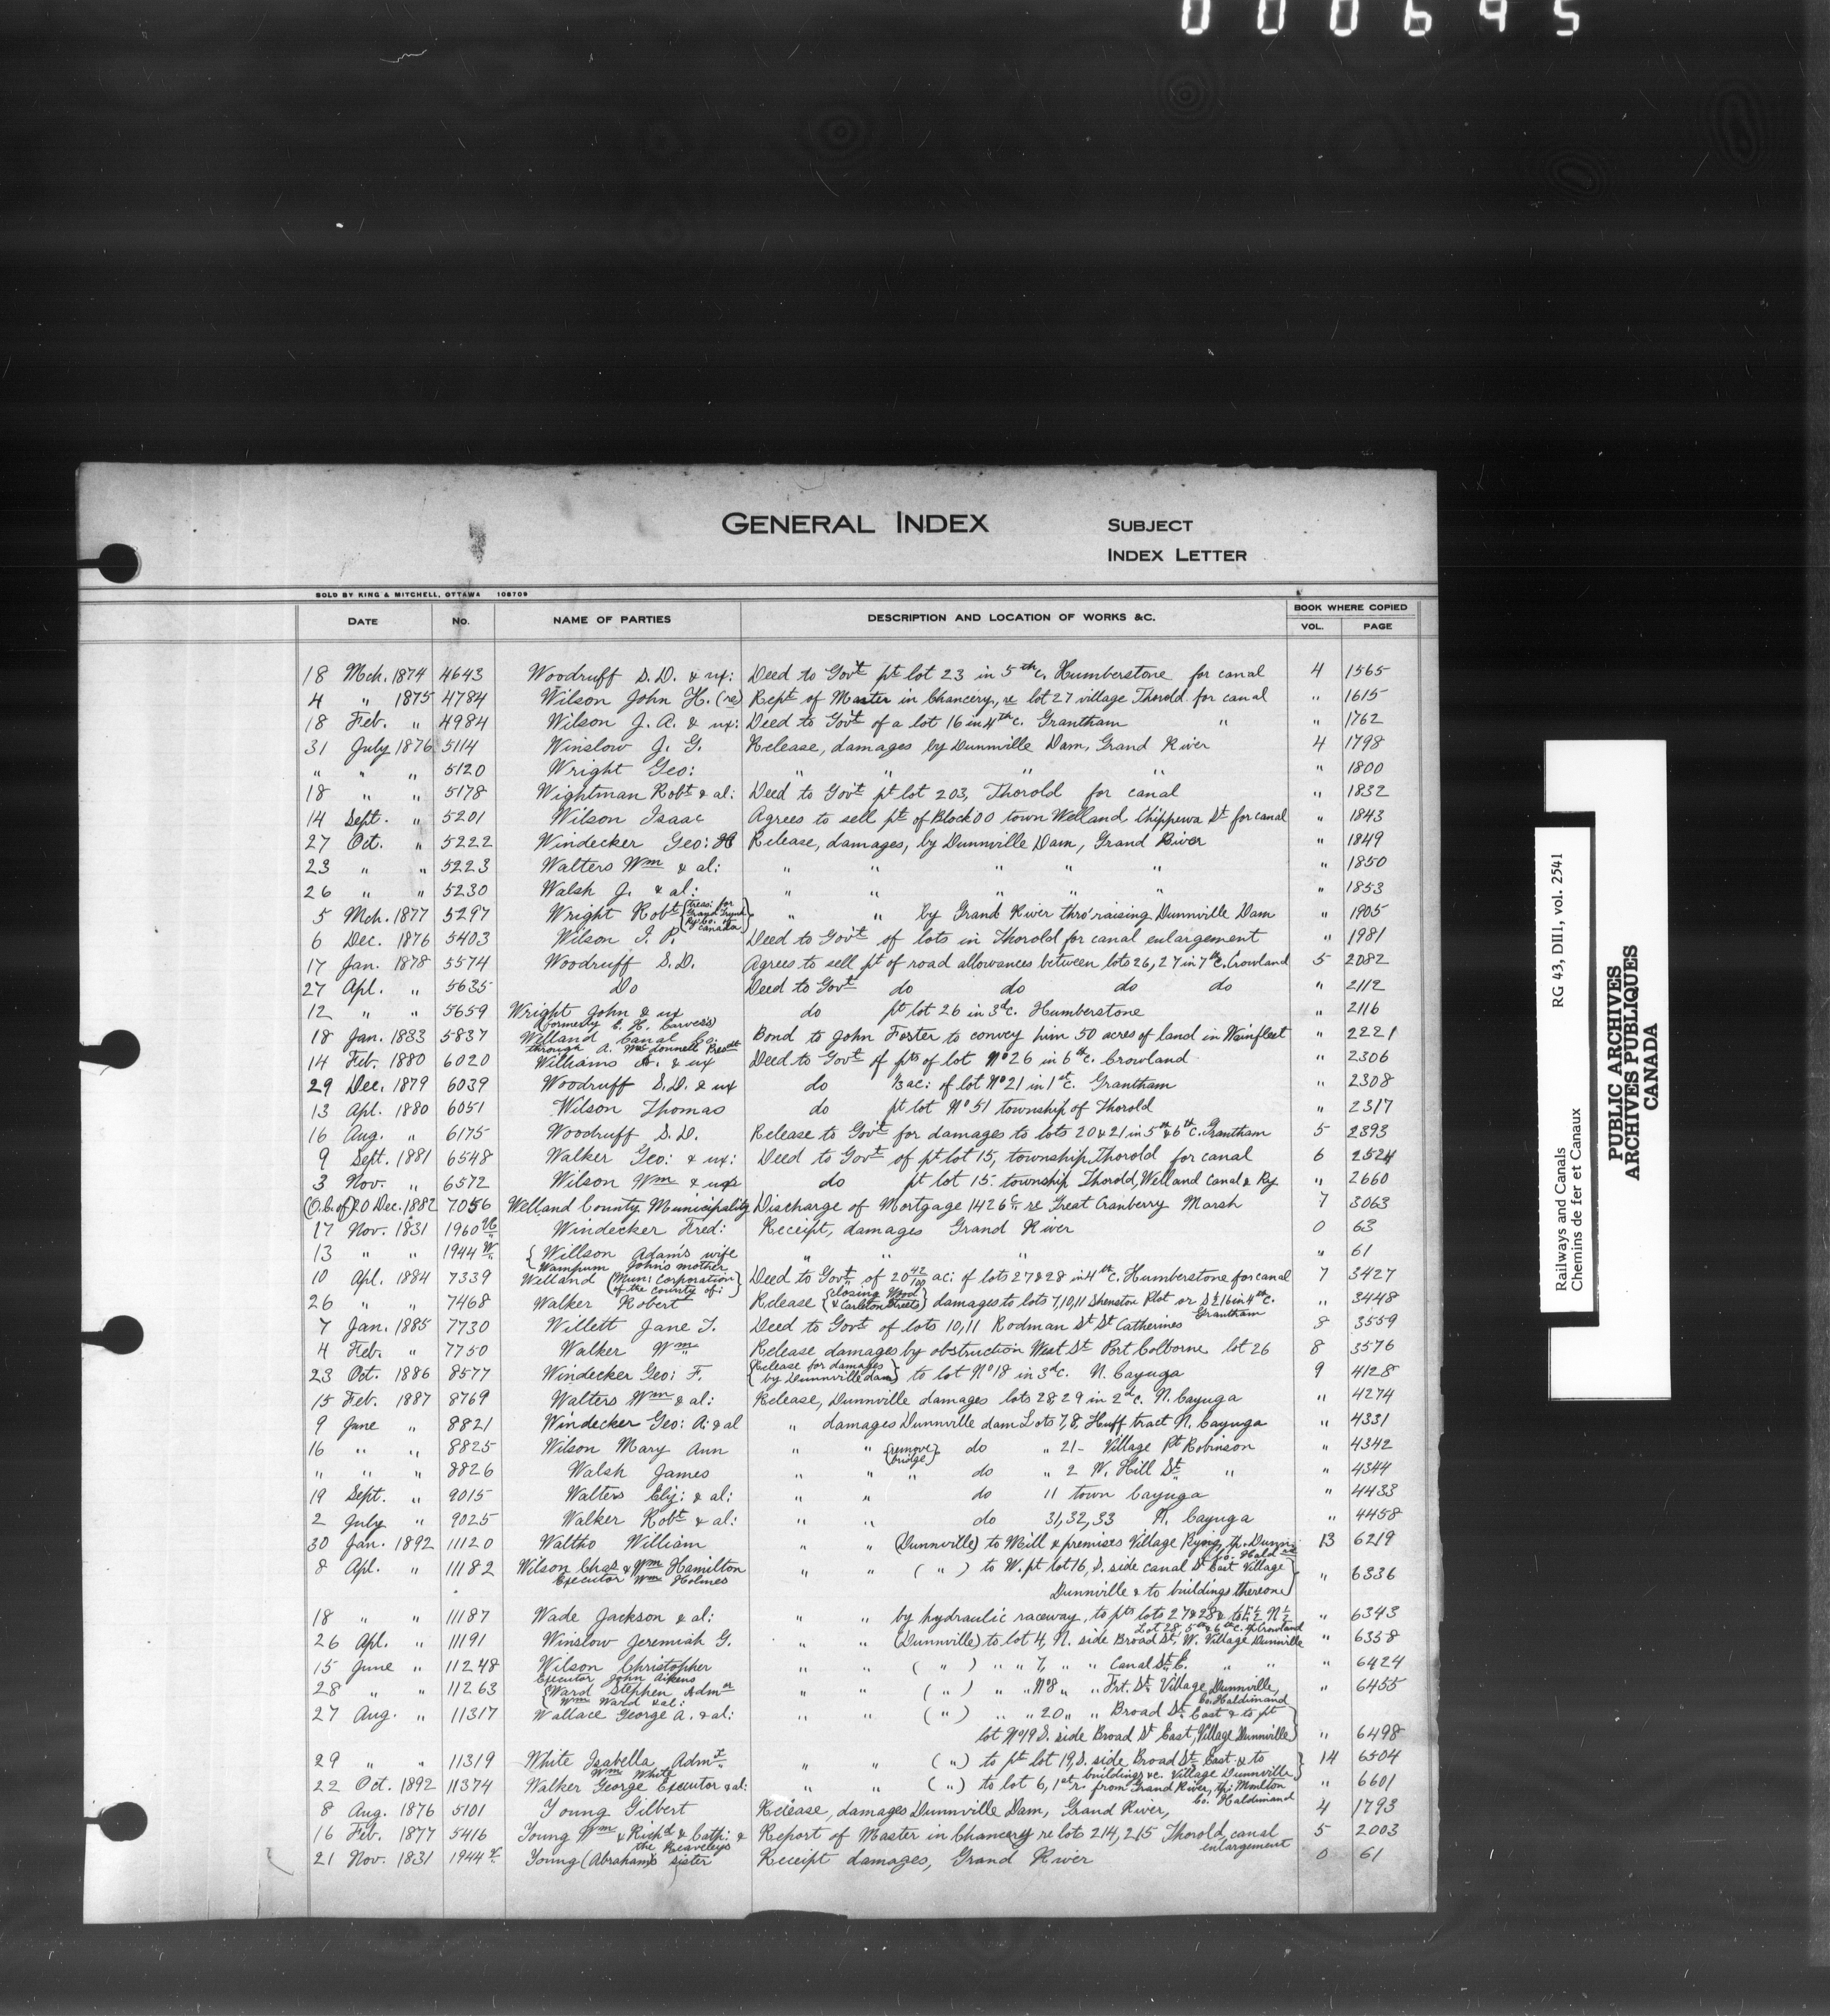 000695
GENERAL INDEX
SUBJECT
INDEX LETTER
SOLD BY KING & MITCHELL, OTTAWA 108709
DATE No. NAME OF PARTIES DESCRIPTION AND LOCATION OF WORKS &C. BOOK WHERE COPIED
VOL. PAGE
18 Mch. 1874 4643 Woodruff S. D. & ux: Deed to Gov't pt lot 23 in 5th c. Humberstone for canal 4 1565
4 " 1875 4784 Wilson John H. (re) Rept of Master in Chancery, re lot 27 village Thorold for canal " 1615
18 Feb. " 4984 Wilson J. A. & ux: Deed to Gov't of a lot 16 in 4th c. Grantham " " 1762
31 July 1876 5114 Winslow J. G. Release, damages by Dunnville Dam, Grand River 4 1798
" " " 5120 Wright Geo: " " " " " 1800
18 " " 5178 Wightman Robt & al: Deed to Gov't pt lot 203, Thorold for canal " 1832
14 Sept. " 5201 Wilson Isaac Agrees to sell pt of Block OO town Welland Chippewa St for canal " 1843
27 Oct. " 5222 Windecker Geo: H Release, damages, by Dunnville Dam, Grand River " 1849
23 " " 5223 Walters Wm & al: " " " " " " 1850
26 " " 5230 Walsh J. & al: " " " " " " 1853
5 Mch. 1877 5297 Wright Robt {treas: for Grand Trunk Ry: Co. of Canada} " " by Grand River thro' raising Dunnville Dam " 1905
6 Dec. 1876 5403 Wilson I. P. Deed to Gov't of lots in Thorold for canal enlargement " 1981
17 Jan. 1878 5574 Woodruff S. D. Agrees to sell pt of road allowances between lots 26, 27 in 7th c. Crowland 5 2082
27 Apl. " 5635 Do Deed to Govt do do do do " 2112
12 " " 5659 Wright John & ux do pt lot 26 in 3d c. Humberstone " 2116
(formerly C. H. Carver's)
18 Jan. 1833 5837 Welland Canal Co. Bond to John Foster to convey him 50 acres of land in Wainfleet " 2221
through A. McDonnell Presdt
14 Feb. 1880 6020 Williams A. & ux Deed to Govt of pts of lot No 26 in 6th c. Crowland " 2306
29 Dec. 1879 6039 Woodruff S. D. & ux do 13 ac: of lot No 21 in 1st c. Grantham " 2308
13 Apl. 1880 6051 Wilson Thomas do pt lot No 51 township of Thorold " 2317
16 Aug. " 6175 Woodruff S. D. Release to Gov't for damages to lots 20 & 21 in 5th & 6th c. Grantham 5 2393
9 Sept. 1881 6548 Walker Geo: & ux: Deed to Govt of pt lot 15, township Thorold for canal 6 2524
3 Nov. " 6572 Wilson Wm & ux do pt lot 15. township Thorold, Welland Canal & Ry " 2660
(O.C. of) 20 Dec. 1882 7056 Welland County Municipality Discharge of Mortgage 1426 re Great Cranberry Marsh 7 3063
17 Nov. 1831 1960 Windecker Fred: Receipt, damages Grand River 0 63
13 " " 1944 W {Willson Adam's wife " " " " 61
Wampum John's mother
10 Apl. 1884 7339 Welland (Mun: Corporation of the county of:) Deed to Govt of 20 42/100 ac: of lots 27 & 28 in 4th c. Humberstone for canal 7 3427
26 " " 7468 Walker Robert Release {closing Wood & Carleton Streets} damages to lots 7, 10, 11 Shenston Plot or S½ 16 in 4th c. Grantham " 3448
7 Jan. 1885 7730 Willett Jane T. Deed to Govt of lots 10, 11 Rodman St St Catherines 8 3559
4 Feb. " 7750 Walker Wm Release damages by obstruction West St Port Colborne lot 26 8 3576
23 Oct. 1886 8577 Windecker Geo: F. {Release for damages by Dunnville dam} to lot No 18 in 3d c. N. Cayuga 9 4128
15 Feb. 1887 8769 Walters Wm & al: Release, Dunnville damages lots 28, 29 in 2d c. N. Cayuga " 4274
9 June " 8821 Windecker Geo: A: & al " damages Dunnville dam Lots 7, 8, Huff tract N. Cayuga " 4331
16 " " 8825 Wilson Mary Ann " " {remove bridge} do " 21- Village Pt Robinson " 4342
" " " 8826 Walsh James " " " do " 2 W. Hill St. " " 4344
19 Sept. " 9015 Walters Eliz: & al: " " do 11 town Cayuga " 4433
2 July " 9025 Walker Robt & al: " " do 31, 32, 33 N. Cayuga " 4458
30 Jan. 1892 11120 Waltho William " " (Dunnville) to Mill & premises Village tp. Dunn Co. Hald 13 6219
8 Apl. " 11182 Wilson Chas & Wm Hamilton " " ( " ) to W. pt lot 16, S. side canal St East Village " 6336
Executor Wm Holmes
Dunnville & to buildings thereon
18 " " 11187 Wade Jackson & al: " " by hydraulic raceway, to pts lots 27 & 28 & to N½ " 6343
Lot 28, 5th & 6th c. Crowland
26 Apl. " 11191 Winslow Jeremiah G. " " (Dunnville) to lot 4, N. side Broad St, W. Village Dunnville " 6358
15 June " 11248 Wilson Christopher " " ( " ) " " 7, " " Canal St. E. " " " 6424
Executor John Aikens
28 " " 11263 {Ward Stephen Admor " " ( " ) " " No 8 " " Frt. St. Village Dunnville, " 6455
Wm Ward & al: Co. Haldimand
27 Aug. " 11317 Wallace George A. & al: " " ( " ) " " 20 " " Broad St. East & to pt
lot No 19 S. side Broad St East, Village Dunnville " 6498
29 " " 11319 White Isabella Admt " " ( " ) to pt lot 19, S. side Broad St East & to 14 6504
Wm White buildings &c. Village Dunnville
22 Oct. 1892 11374 Walker George Executor & al: " " ( " ) to lot 6, 1st r. from Grand River, tp: Moulton " 6601
Co. Haldimand
8 Aug. 1876 5101 Young Gilbert Release, damages Dunnville Dam, Grand River, 4 1793
16 Feb. 1877 5416 Young Wm & Richd & Cath: & Report of Master in Chancery re lots 214, 215 Thorold, canal 5 2003
the Keaveleys enlargement
21 Nov. 1831 1944 Young (Abraham)'s sister Receipt damages, Grand River 0 61
Railways and Canals RG 43, DIII, vol. 2541
Chemins de fer et Canaux
PUBLIC ARCHIVES
ARCHIVES PUBLIQUES
CANADA